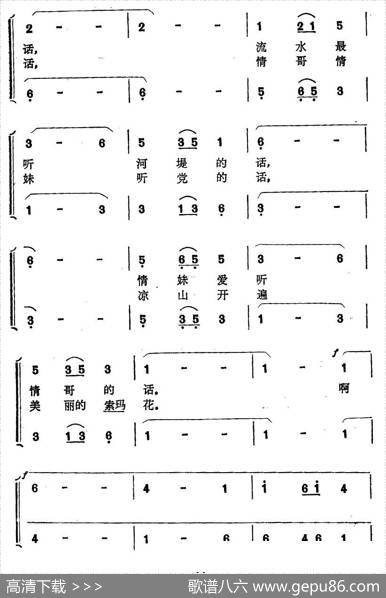 2 - - | 2 - - | 1 2 1 5
话, 流 水 最
话, 情 哥 情
6 - - | 6 - - | 5 6 5 3
3 - 6 | 5 3 5 1 | 6 - -
听 河 堤 的 话,
妹 听 党 的 话,
1 - 3 | 3 1 3 6 | 3 - -
6 - - | 5 6 5 5 | 3 - 6
情 妹 爱 听
凉 山 开 遍
3 - - | 5 3 5 3 | 1 - 3
5 3 5 3 | 1 - - | 1 - 1
f
情 哥 的 话。 啊
美 丽的 索玛 花。
3 1 3 6 | 1 - - | 1 - 1
f
6 - - | 4 - 1 | 1 6 1 4
4 - - | 1 - 6 | 6 4 6 1
高清下载 >>>
歌谱八六 www.gepu86.com